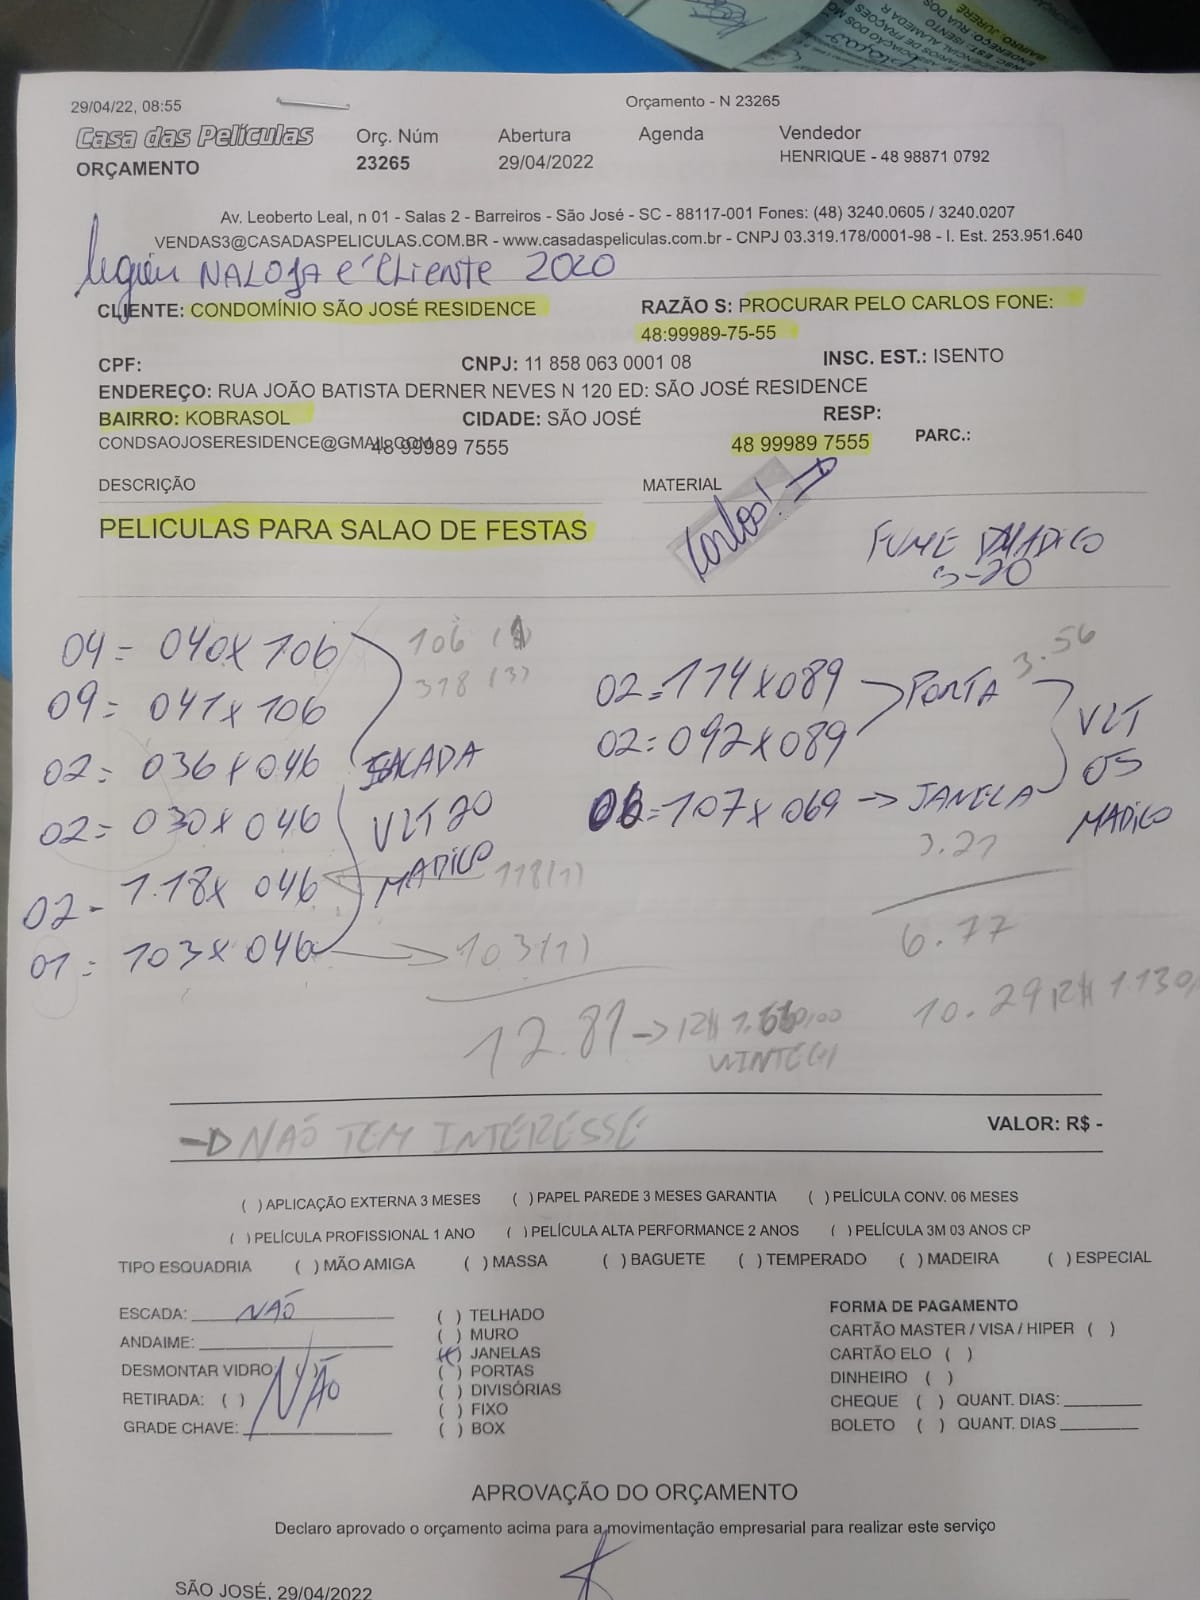 29/04/22, 08:55 Orçamento - N 23265
Casa das Películas Orç. Núm Abertura Agenda Vendedor
ORÇAMENTO 23265 29/04/2022 HENRIQUE - 48 98871 0792
Av. Leoberto Leal, n 01 - Salas 2 - Barreiros - São José - SC - 88117-001 Fones: (48) 3240.0605 / 3240.0207
VENDAS3@CASADASPELICULAS.COM.BR - www.casadaspeliculas.com.br - CNPJ 03.319.178/0001-98 - I. Est. 253.951.640
NA LOJA É CLIENTE 2020
CLIENTE: CONDOMÍNIO SÃO JOSÉ RESIDENCE RAZÃO S: PROCURAR PELO CARLOS FONE:
48:99989-75-55
CPF: CNPJ: 11 858 063 0001 08 INSC. EST.: ISENTO
ENDEREÇO: RUA JOÃO BATISTA DERNER NEVES N 120 ED: SÃO JOSÉ RESIDENCE
BAIRRO: KOBRASOL CIDADE: SÃO JOSÉ RESP:
CONDSAOJOSERESIDENCE@GMAIL.COM 48 99989 7555 48 99989 7555 PARC.:
DESCRIÇÃO MATERIAL
PELICULAS PARA SALAO DE FESTAS
Carlos!
FUME MADICO
S-20
04 = 040 X 106 106 (1)
318 (3)
09 = 041 X 106
02 = 036 X 046 SACADA
02 = 030 X 046 VLT 20
02 - 1.18 X 046 MADICO 118(1)
01 = 103 X 046 103(1)
12.81 R$
WINTECH
02 = 114 X 089 PORTA 3.56
02 = 092 X 089 VLT
05
06 = 107 X 069 JANELA MADICO
3.21
6.77
10.29 R$ 1.130,
NÃO TEM INTERESSE VALOR: R$ -
( ) APLICAÇÃO EXTERNA 3 MESES ( ) PAPEL PAREDE 3 MESES GARANTIA ( ) PELÍCULA CONV. 06 MESES
( ) PELÍCULA PROFISSIONAL 1 ANO ( ) PELÍCULA ALTA PERFORMANCE 2 ANOS ( ) PELÍCULA 3M 03 ANOS CP
TIPO ESQUADRIA ( ) MÃO AMIGA ( ) MASSA ( ) BAGUETE ( ) TEMPERADO ( ) MADEIRA ( ) ESPECIAL
ESCADA: NÃO
ANDAIME:
DESMONTAR VIDRO: ( )
RETIRADA: ( ) NÃO
GRADE CHAVE:
( ) TELHADO
( ) MURO
(X) JANELAS
( ) PORTAS
( ) DIVISÓRIAS
( ) FIXO
( ) BOX
FORMA DE PAGAMENTO
CARTÃO MASTER / VISA / HIPER ( )
CARTÃO ELO ( )
DINHEIRO ( )
CHEQUE ( ) QUANT. DIAS:
BOLETO ( ) QUANT. DIAS
APROVAÇÃO DO ORÇAMENTO
Declaro aprovado o orçamento acima para a movimentação empresarial para realizar este serviço
SÃO JOSÉ, 29/04/2022